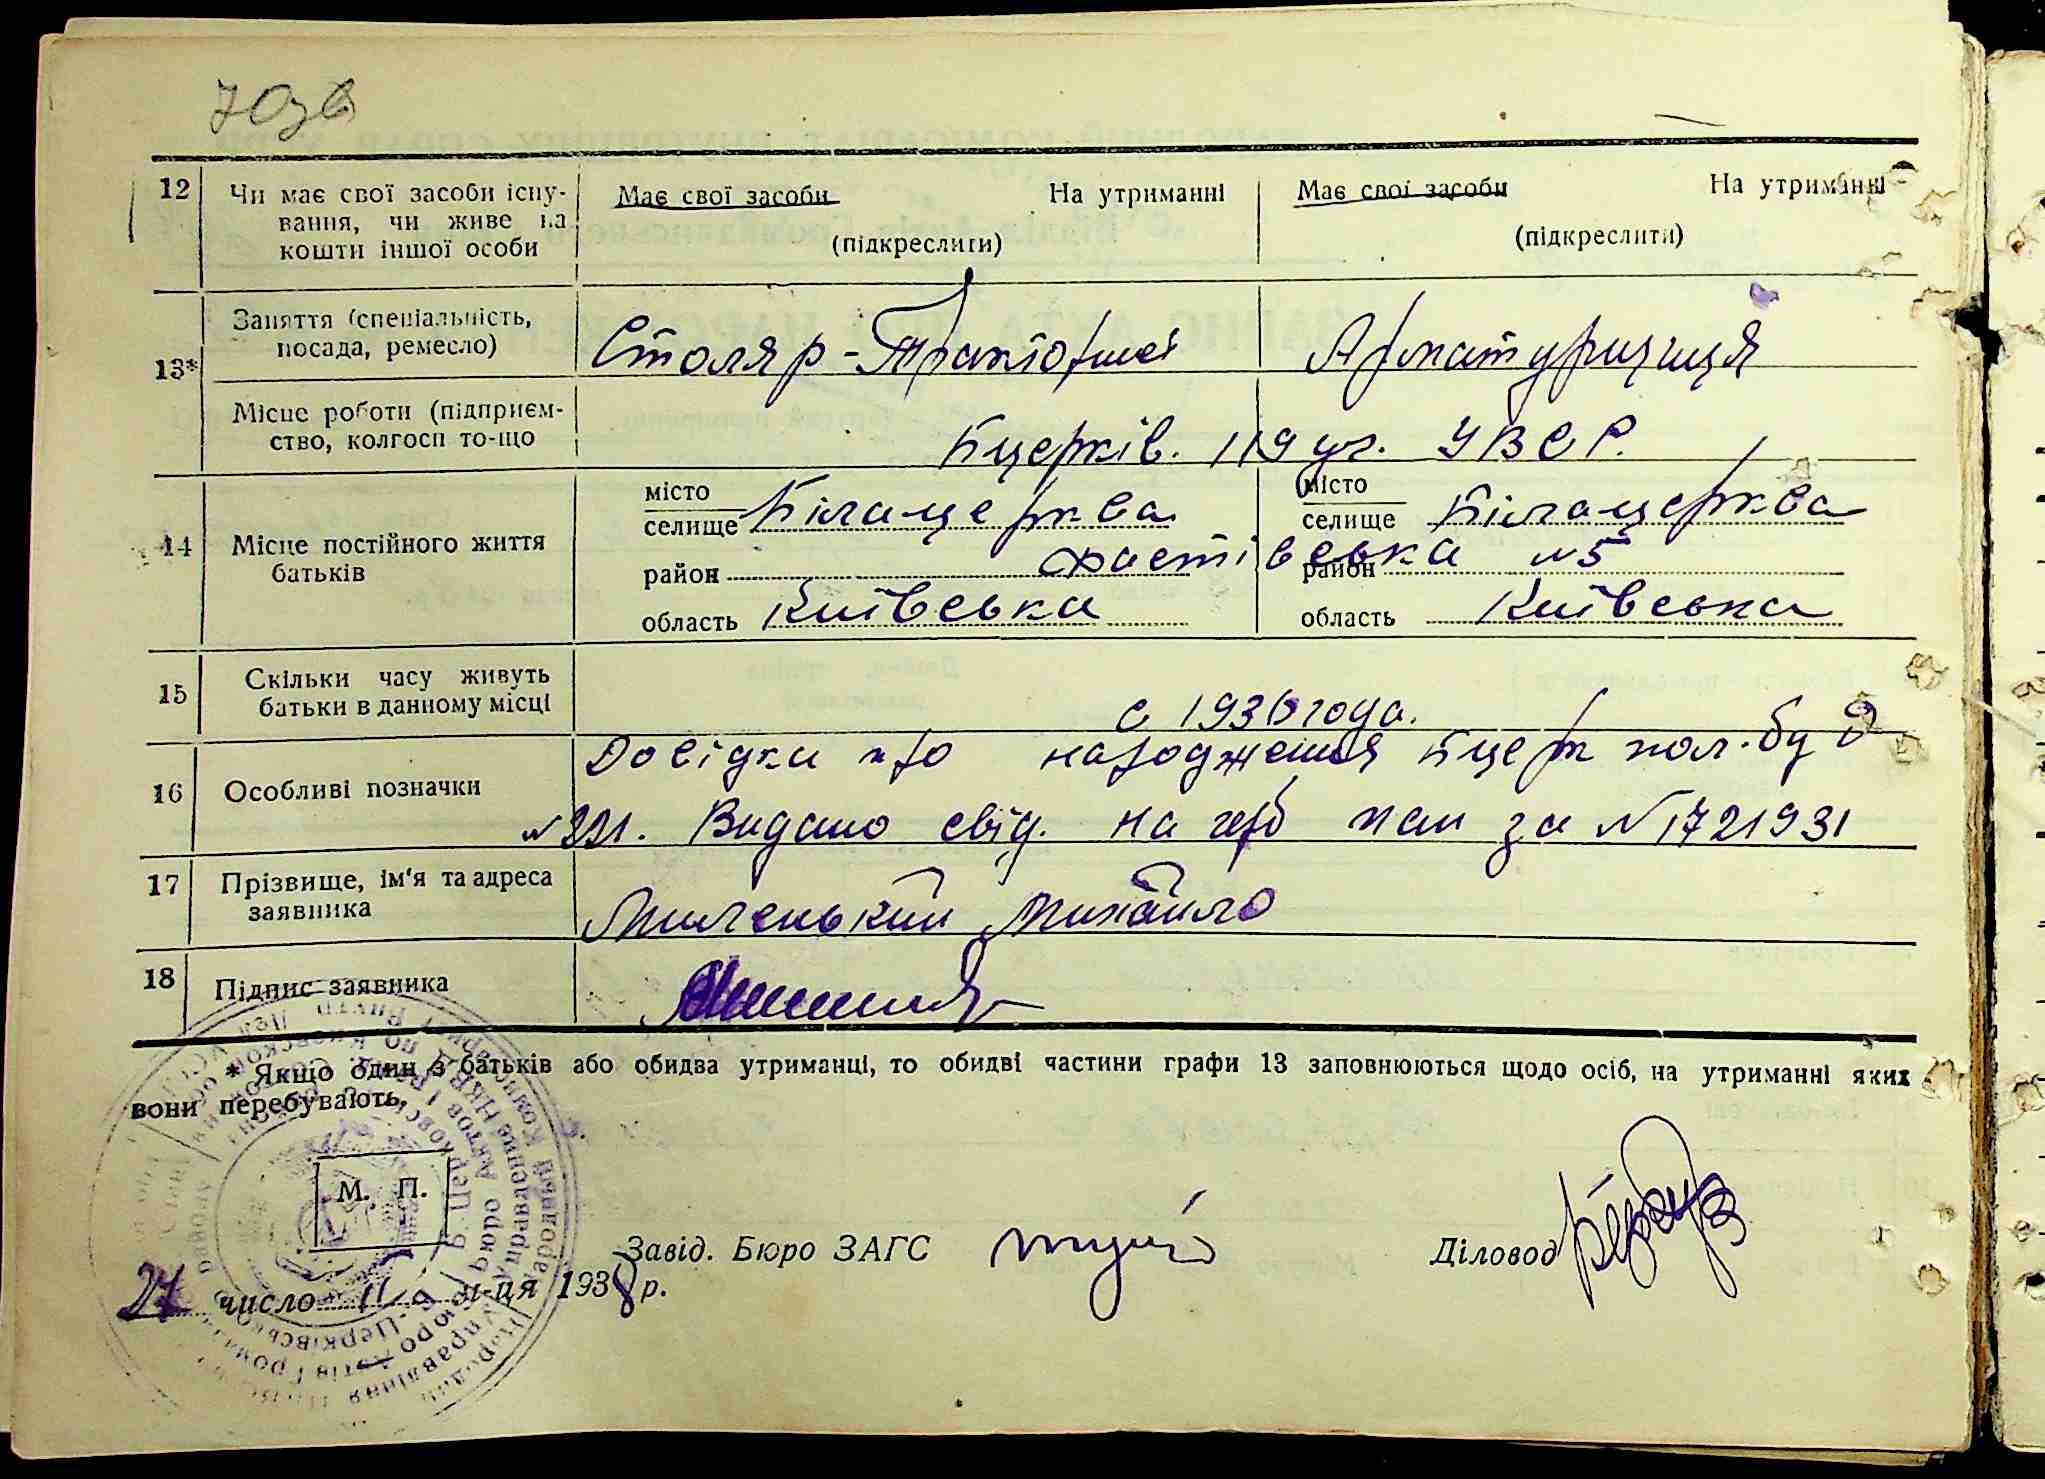 703в
12 Чи має свої засоби існування, чи живе на кошти іншої особи
Має свої засоби На утриманні (підкреслити)
Має свої засоби На утриманні (підкреслити)
13* Заняття (спеціальність, посада, ремесло)
Столяр- Арматурщиця
Місце роботи (підприємство, колгосп то-що
Бцерків. 119 уч. УВСР.
14 Місце постійного життя батьків
місто селище Білацерква
місто селище Білацерква
район район Фастівська №5
область Київська
область Київська
15 Скільки часу живуть батьки в данному місці
с 1936 года.
16 Особливі позначки
Довідка про народження Бцерк пол. буд
Видано свід. на за №1721931
17 Прізвище, ім'я та адреса заявника
Миленький Михайло
18 Підпис заявника
* Якщо один з батьків або обидва утриманці, то обидві частини графи 13 заповнюються щодо осіб, на утриманні яких
вони перебувають.
М. П.
Завід. Бюро ЗАГС
Діловод
27 число м-ця 1938 р.